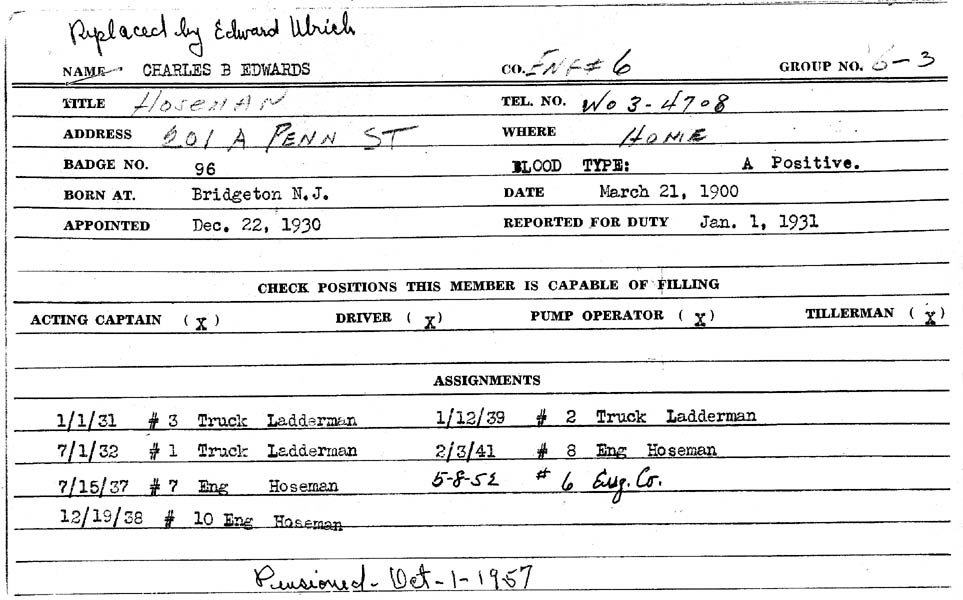 Replaced by Edward Ulrich
NAME CHARLES B EDWARDS CO. ENG # 6 GROUP NO. 6-3
TITLE HOSEMAN TEL. NO. WO 3-4708
ADDRESS 201 A PENN ST WHERE HOME
BADGE NO. 96 BLOOD TYPE: A Positive.
BORN AT. Bridgeton N.J. DATE March 21, 1900
APPOINTED Dec. 22, 1930 REPORTED FOR DUTY Jan. 1, 1931
CHECK POSITIONS THIS MEMBER IS CAPABLE OF FILLING
ACTING CAPTAIN (X) DRIVER (X) PUMP OPERATOR (X) TILLERMAN (X)
ASSIGNMENTS
1/1/31 # 3 Truck Ladderman 1/12/39 # 2 Truck Ladderman
7/1/32 # 1 Truck Ladderman 2/3/41 # 8 Eng Hoseman
7/15/37 # 7 Eng Hoseman 5-8-52 # 6 Eng. Co.
12/19/38 # 10 Eng Hoseman
Pensioned - Oct-1-1957